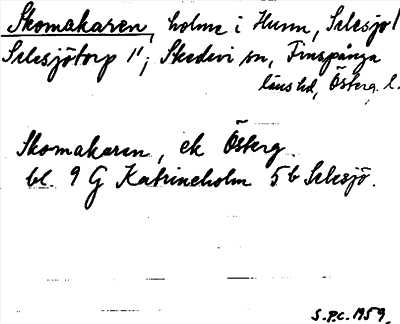 Skomakaren, holme i Hunn, Selesjö/
Selesjötorp 1¹; Skedevi sn, Finspånga
läns hd, Österg. l.
Skomakaren, ek Österg.
bl. 9 G Katrineholm 5b Selesjö.
S.P.C. 1959.